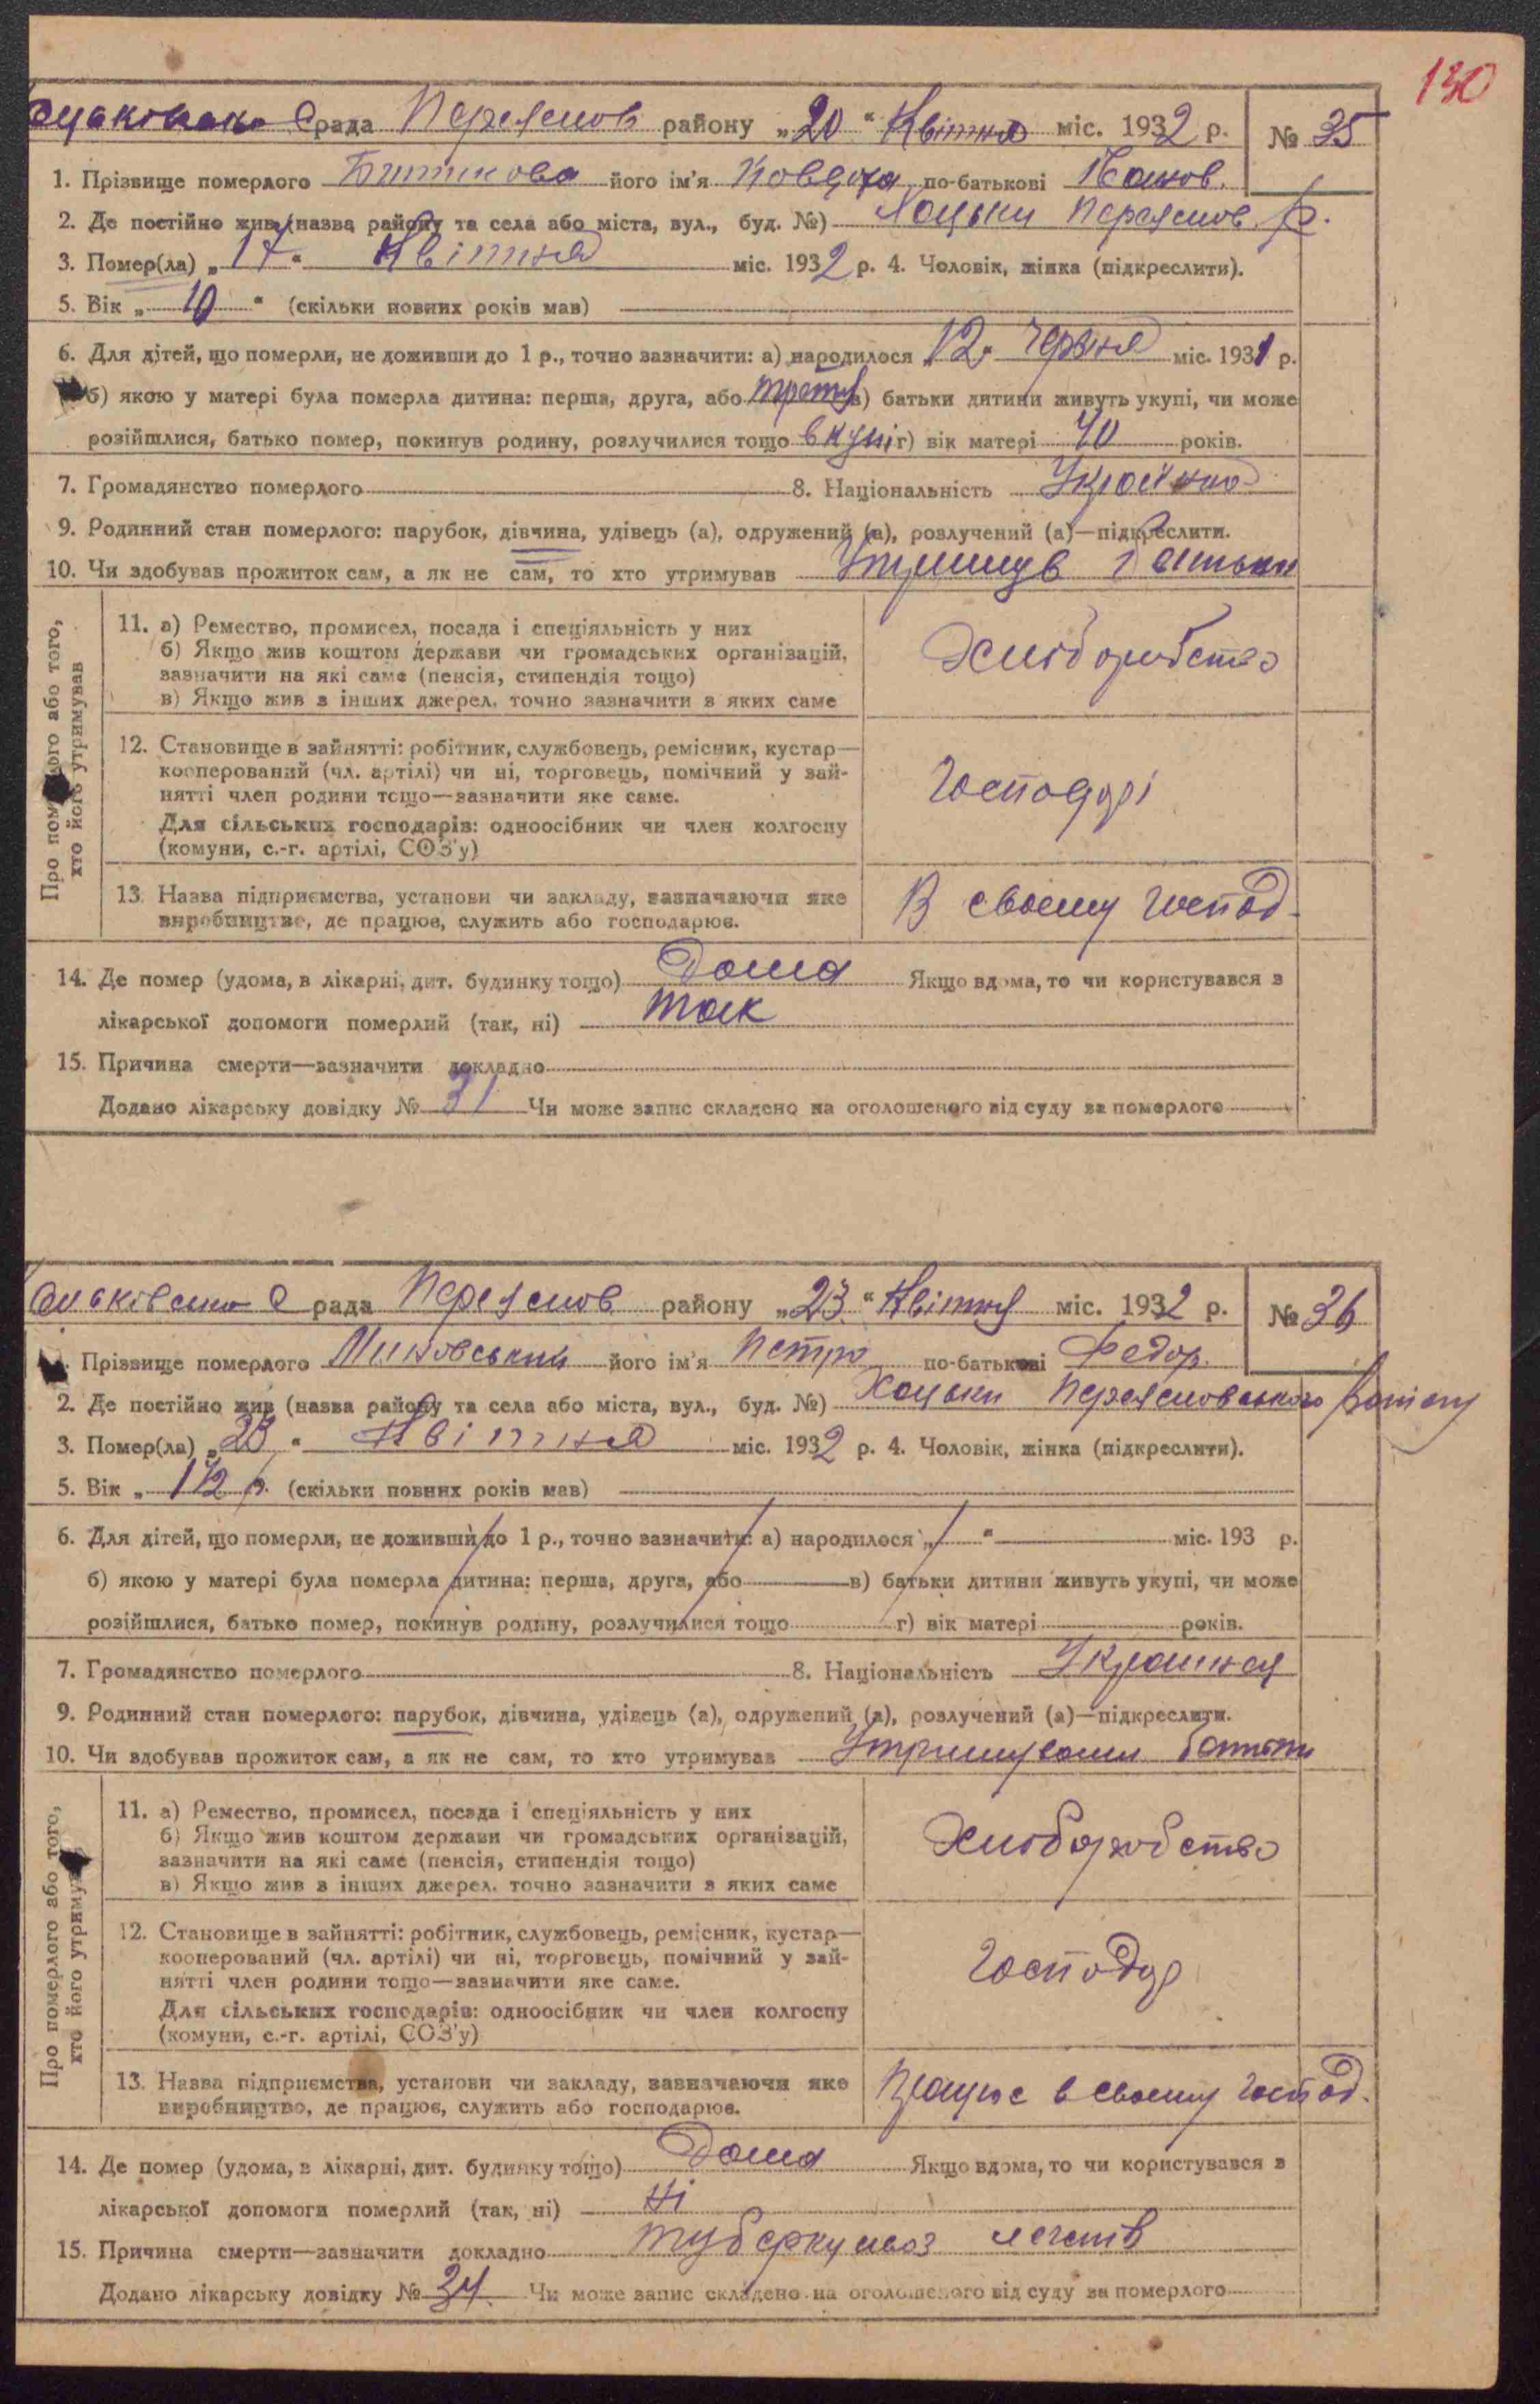 130
рада Переяслов району „20“ Квітня міс. 1932 р. № 35
1. Прізвище померлого його ім'я по-батькові
2. Де постійно жив (назва району та села або міста, вул., буд. №) Хоцьки Переяслов. р.
3. Помер(ла) „17“ Квітня міс. 1932 р. 4. Чоловік, жінка (підкреслити).
5. Вік „10“ (скільки повних років мав)
6. Для дітей, що померли, не доживши до 1 р., точно зазначити: а) народилося „12“ Червня міс. 1931 р.
б) якою у матері була померла дитина: перша, друга, або третя в) батьки дитини живуть укупі, чи може
розійшлися, батько помер, покинув родину, розлучилися тощо вкупі г) вік матері 40 років.
7. Громадянство померлого 8. Національність
9. Родинний стан померлого: парубок, дівчина, удівець (а), одружений (а), розлучений (а)—підкреслити.
10. Чи здобував прожиток сам, а як не сам, то хто утримував
Про померлого або того,
хто його утримував
11. а) Ремество, промисел, посада і спеціяльність у них
б) Якщо жив коштом держави чи громадських організацій,
зазначити на які саме (пенсія, стипендія тощо)
в) Якщо жив з інших джерел, точно зазначити з яких саме
Хліборобство
12. Становище в зайнятті: робітник, службовець, ремісник, кустар—
кооперований (чл. артілі) чи ні, торговець, помічний у зай-
нятті член родини тощо—зазначити яке саме.
Для сільських господарів: одноосібник чи член колгоспу
(комуни, с.-г. артілі, СОЗ'у)
13. Назва підприємства, установи чи закладу, зазначаючи яке
виробництво, де працює, служить або господарює.
В своєму господ.
14. Де помер (удома, в лікарні, дит. будинку тощо) Дома Якщо вдома, то чи користувався з
лікарської допомоги померлий (так, ні) так
15. Причина смерти—зазначити докладно
Додано лікарську довідку № 31 Чи може запис складено на оголошеного від суду за померлого
рада Переяслов району „23“ Квітня міс. 1932 р. № 36
1. Прізвище померлого його ім'я Петро по-батькові Федор.
2. Де постійно жив (назва району та села або міста, вул., буд. №) Хоцьки Переясловського району
3. Помер(ла) „23“ Квітня міс. 1932 р. 4. Чоловік, жінка (підкреслити).
5. Вік „1 1/2 р. (скільки повних років мав)
6. Для дітей, що померли, не доживши до 1 р., точно зазначити: а) народилося „ “ міс. 193 р.
б) якою у матері була померла дитина: перша, друга, або в) батьки дитини живуть укупі, чи може
розійшлися, батько помер, покинув родину, розлучилися тощо г) вік матері років.
7. Громадянство померлого 8. Національність
9. Родинний стан померлого: парубок, дівчина, удівець (а), одружений (а), розлучений (а)—підкреслити.
10. Чи здобував прожиток сам, а як не сам, то хто утримував
Про померлого або того,
хто його утримував
11. а) Ремество, промисел, посада і спеціяльність у них
б) Якщо жив коштом держави чи громадських організацій,
зазначити на які саме (пенсія, стипендія тощо)
в) Якщо жив з інших джерел, точно зазначити з яких саме
Хліборобство
12. Становище в зайнятті: робітник, службовець, ремісник, кустар—
кооперований (чл. артілі) чи ні, торговець, помічний у зай-
нятті член родини тощо—зазначити яке саме.
Для сільських господарів: одноосібник чи член колгоспу
(комуни, с.-г. артілі, СОЗ'у)
Господар
13. Назва підприємства, установи чи закладу, зазначаючи яке
виробництво, де працює, служить або господарює.
Працює в своєму господ.
14. Де помер (удома, в лікарні, дит. будинку тощо) Дома Якщо вдома, то чи користувався з
лікарської допомоги померлий (так, ні) Ні
15. Причина смерти—зазначити докладно туберкульоз
Додано лікарську довідку № 34 Чи може запис складено на оголошеного від суду за померлого